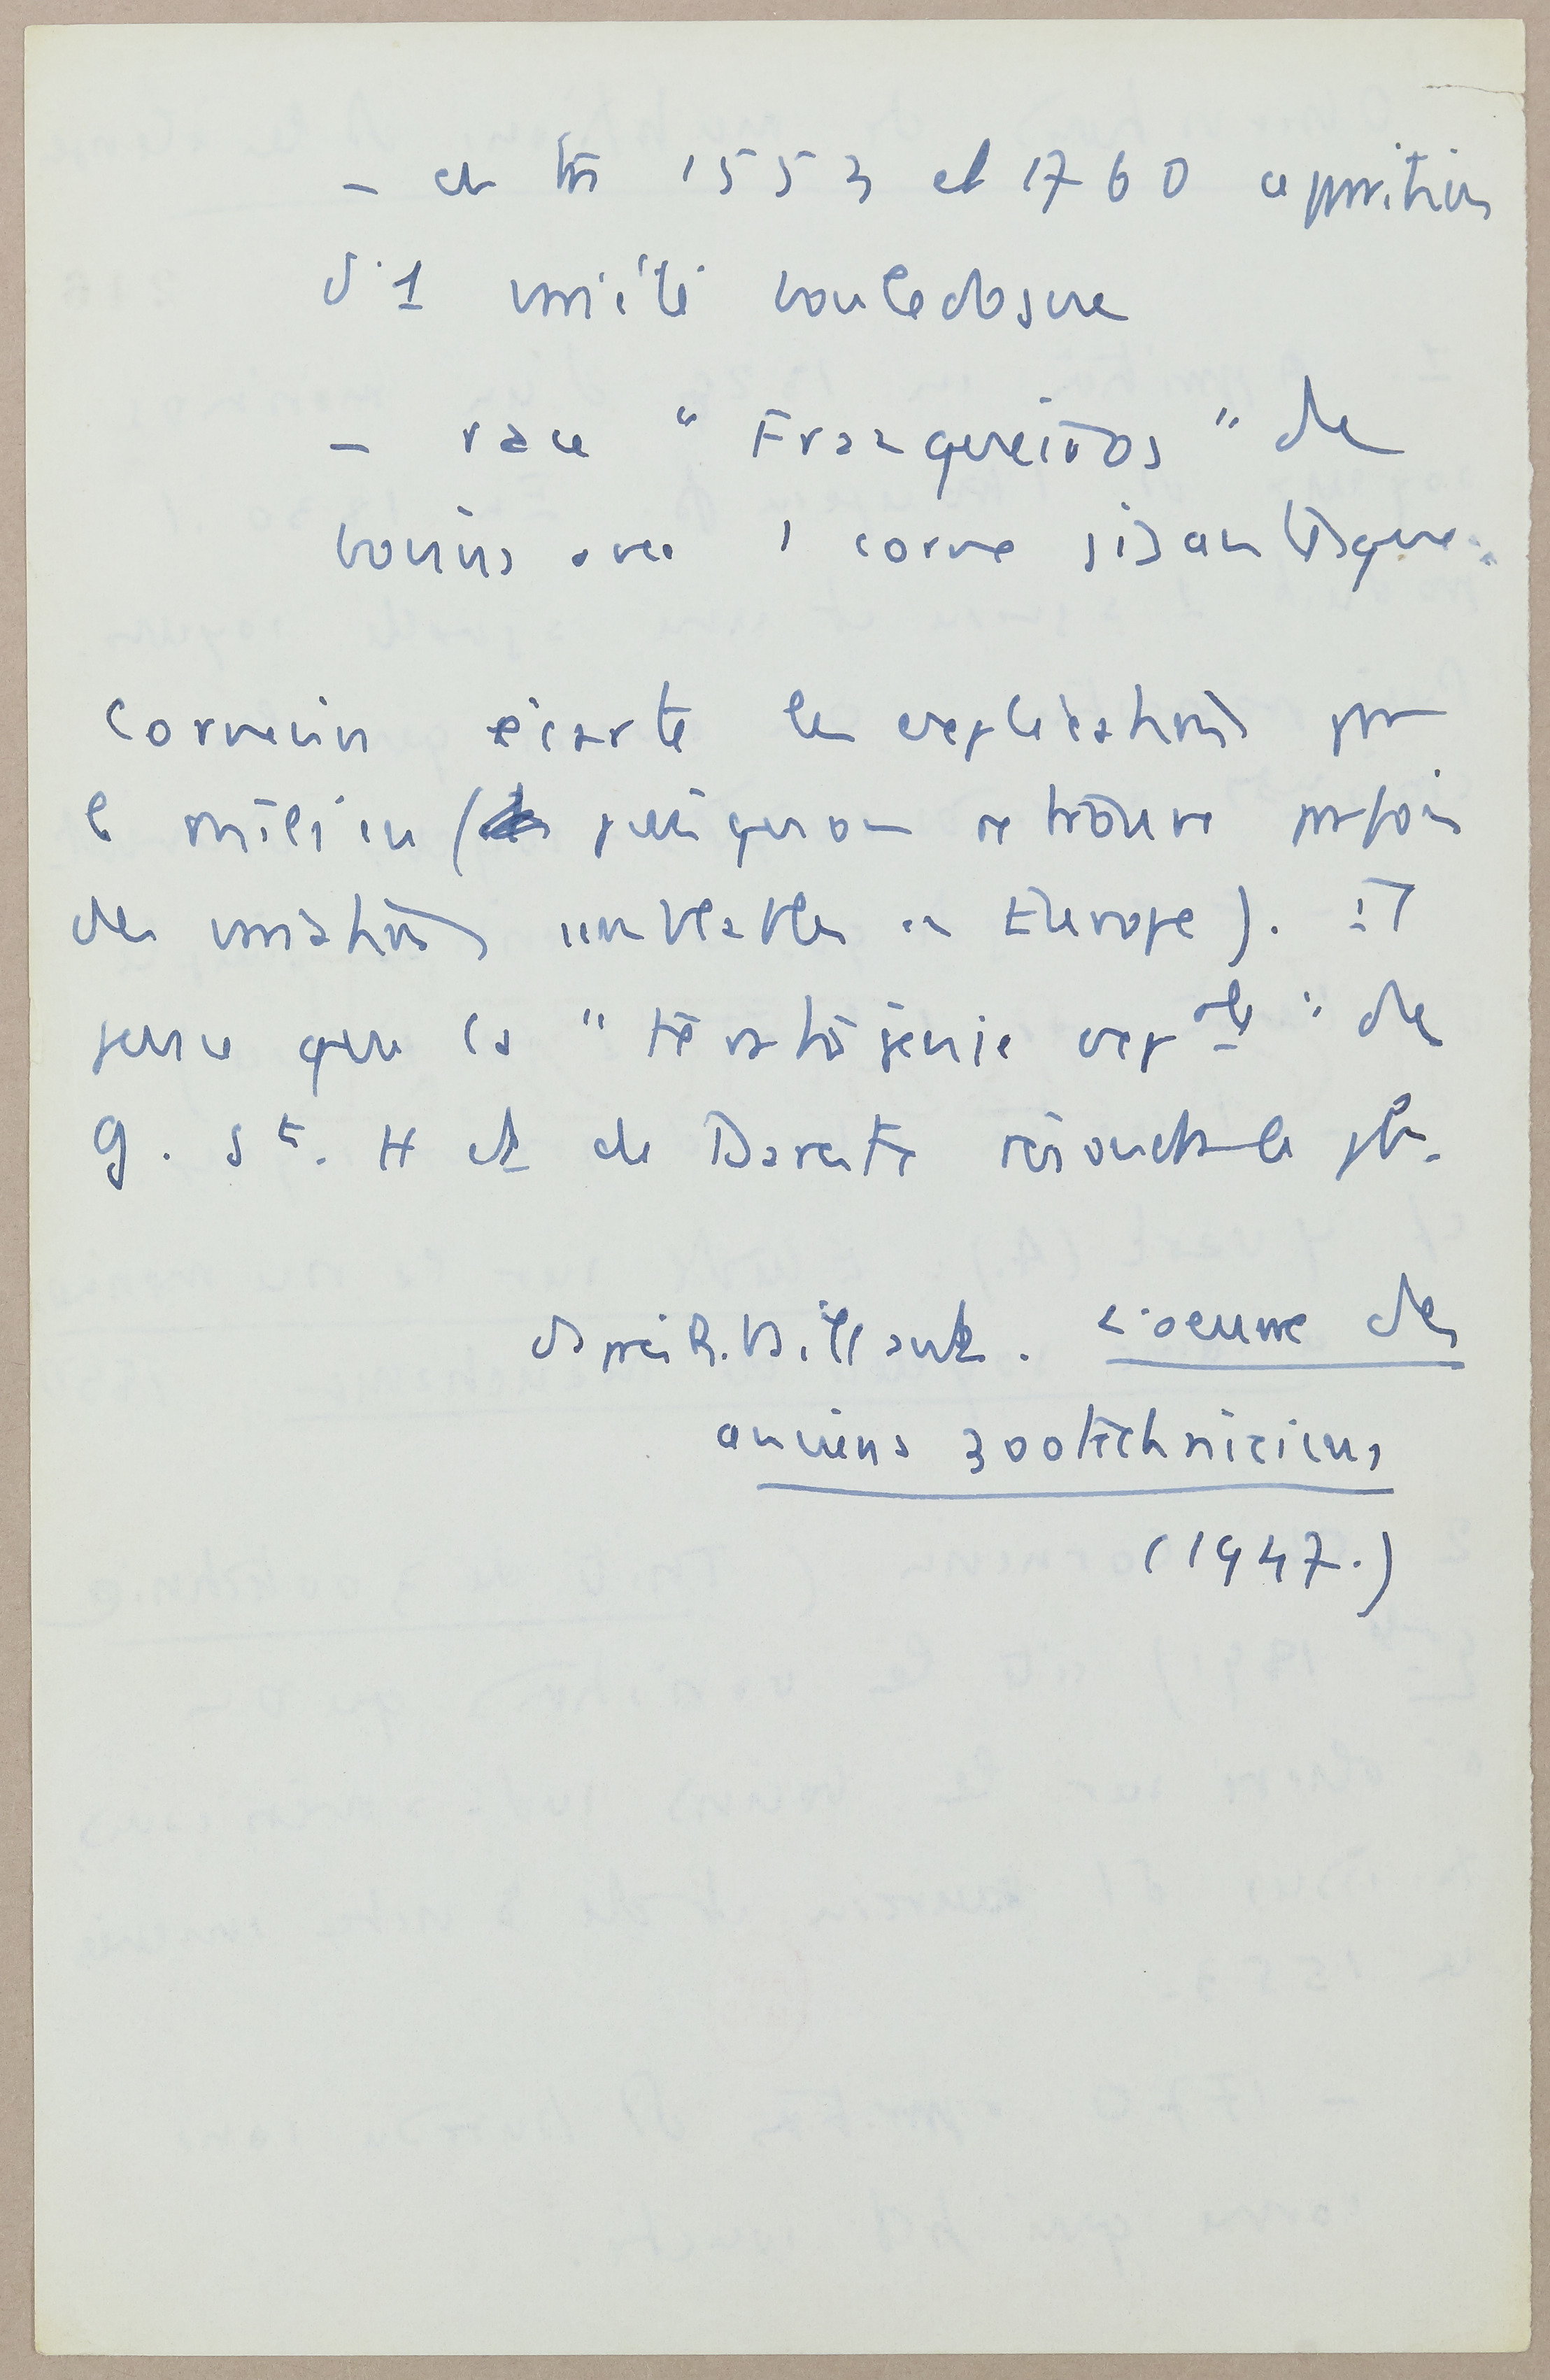 - entre 1553 et 1760 apparition
d'1 variété bouledogue
- race "Franqueiros" de
bovins avec 1 corne gigantesque.
Cornevin écarte les explications par
le milieu ( puisqu'on retrouve parfois
des variations semblables en Europe). Il
pense que la "tératogénie expale" de
G. St. H et de Dareste résoudra le pb.
d'après R. . L'oeuvre des
anciens zootechniciens
(1947.)